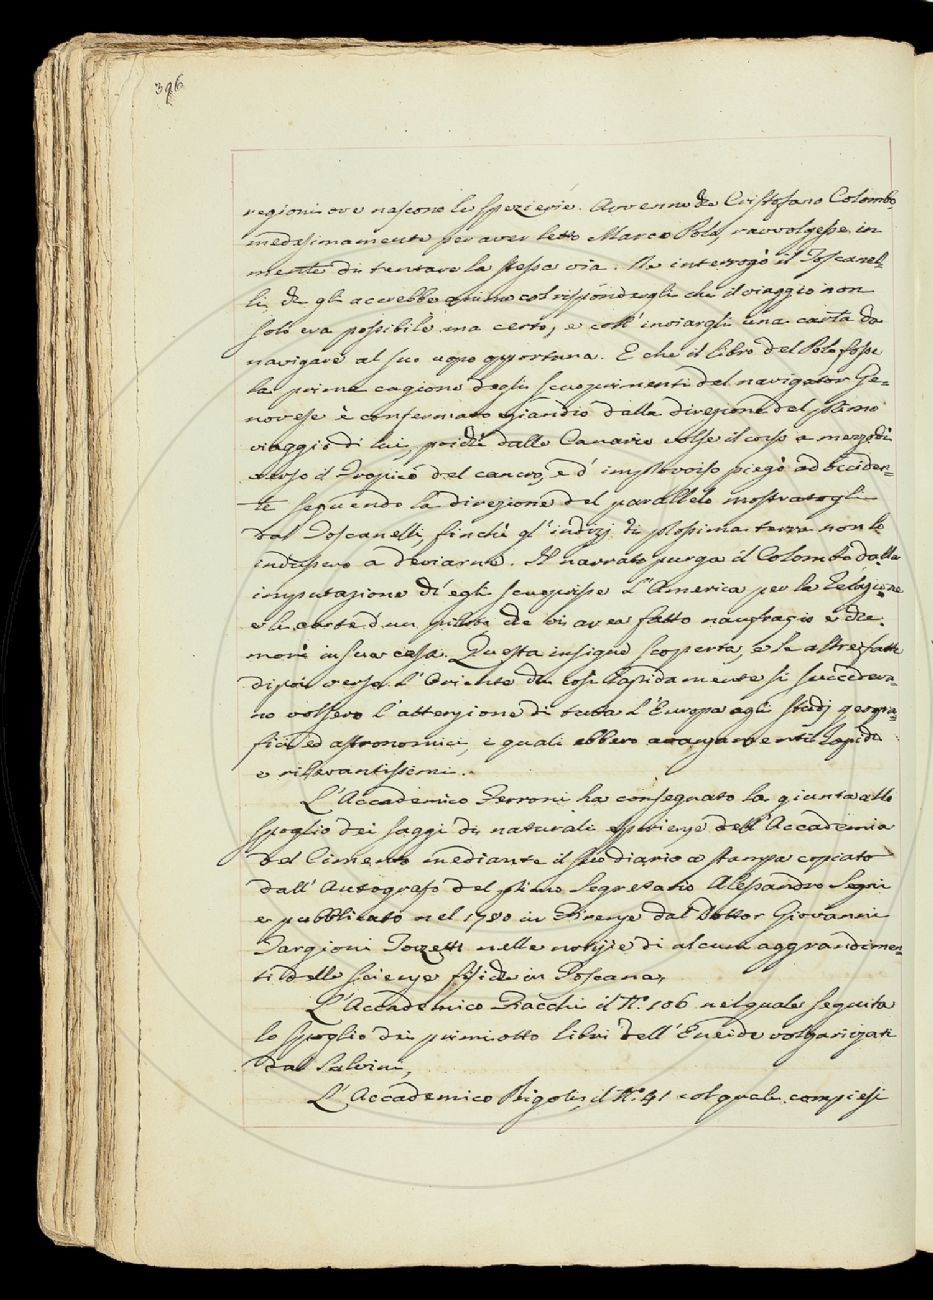 396
regioni ove nascono le spezierie. Avvenne che Cristofano Colombo,
medesimamente per aver letto Marco Polo, ravvolgesse in
mente di tentare la stessa via. Ne interrogò il Toscanel=
li, che gli accrebbe animo col rispondergli che il viaggio non
solo era possibile ma certo, e coll' inviargli una carta da
navigare al suo uopo opportuna. E che il libro del Polo fosse
la prima cagione degli scuoprimenti del navigator Ge=
novese è confermato eziandio dalla direzione del primo
viaggio di lui, poichè dalle Canarie volse il corso a mezzodì
verso il Tropico del cancro, e d' improvviso piegò ad occiden=
te seguendo la direzione del parallelo mostratogli
dal Toscanelli, finchè gl' indizj di prossima terra non lo
indussero a deviarne. Il narrato purga il Colombo dalla
imputazione ch' egli scuoprisse l' America per la relazione
e le carte d' un pilota che vi avea fatto naufragio e che
morì in sua casa. Questa insigne scoperta, e le altre fatte
dipoi verso l' Oriente che così rapidamente si succedeva=
no volsero l' attenzione di tutta l' Europa agli studj geogra=
fici ed astronomici, i quali ebbero avanzamenti rapidi
e rilevantissimi.
L' Accademico Ferroni ha consegnato la giunta allo
spoglio dei saggi di naturali esperienze dell' Accademia
del Cimento mediante il suo diario a stampa copiato
dall' Autografo del primo Segretario Alessandro Segni
e pubblicato nel 1780 in Firenze dal Dottor Giovanni
Targioni Tozzetti nelle notizie di alcuni aggrandimen=
ti delle scienze fisiche in Toscana,
L' Accademico Fiacchi il N.° 106 nel quale seguita
lo spoglio dei primi otto libri dell' Eneide volgarizzati
dal Salvini,
L' Accademico Rigoli, il N.° 41 col quale compiesi